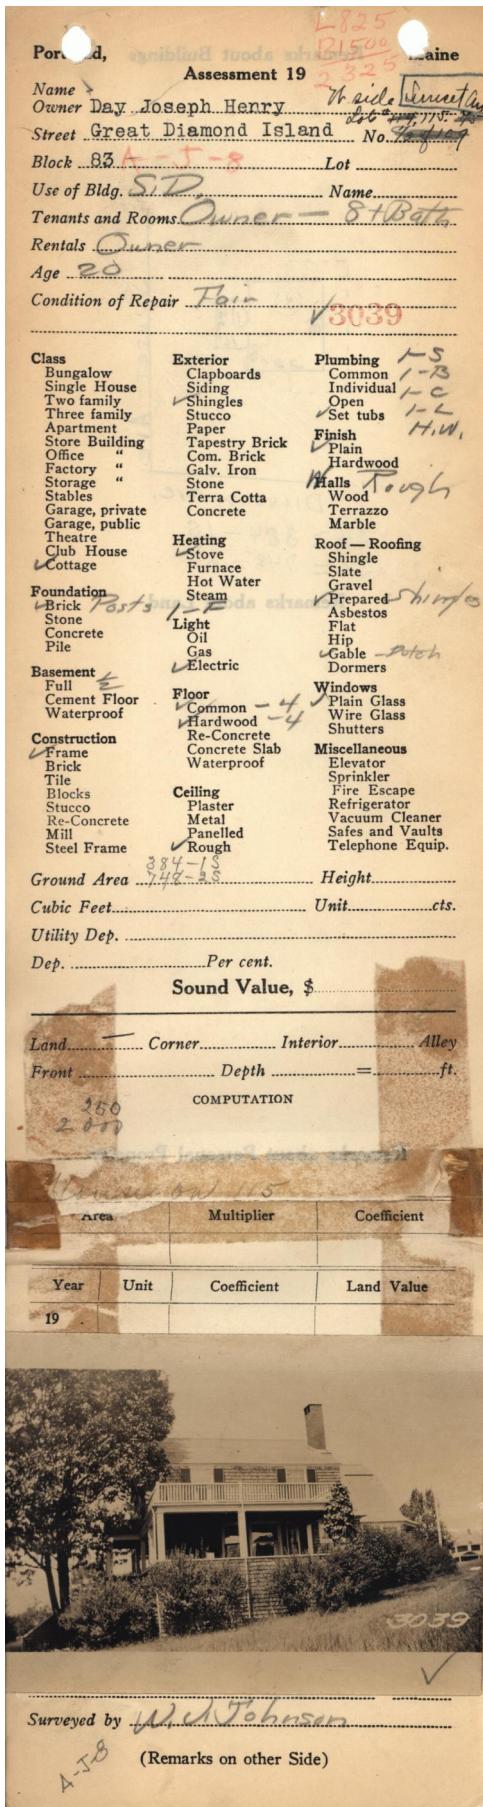 L 825
B 1500
2325
Portland, Maine
Assessment 19
W side Sunset Av
Name
Owner Day Joseph Henry
Lot # 115.
Street Great Diamond Island No.
Block 83 A-J-8 Lot
Use of Bldg. S.D. Name
Tenants and Rooms Owner — 8 + Bath
Rentals Owner
Age 20
Condition of Repair Fair √3039
Class
Bungalow
Single House
Two family
Three family
Apartment
Store Building
Office "
Factory "
Storage "
Stables
Garage, private
Garage, public
Theatre
Club House
✓Cottage
Foundation
✓Brick Posts
Stone
Concrete
Pile
Basement ½
Full
Cement Floor
Waterproof
Construction
✓Frame
Brick
Tile
Blocks
Stucco
Re-Concrete
Mill
Steel Frame
Exterior
Clapboards
Siding
✓Shingles
Stucco
Paper
Tapestry Brick
Com. Brick
Galv. Iron
Stone
Terra Cotta
Concrete
Heating
✓Stove
Furnace
Hot Water
Steam
1-F
Light
Oil
Gas
✓Electric
Floor
✓Common - 4
✓Hardwood - 4
Re-Concrete
Concrete Slab
Waterproof
Ceiling
Plaster
Metal
Panelled
✓Rough
Plumbing 1-S
Common 1-B
Individual 1-C
Open 1-L
✓Set tubs H.W.
Finish
✓Plain
Hardwood
Halls Rough
Wood
Terrazzo
Marble
Roof — Roofing
Shingle
Slate
Gravel
✓Prepared Shingle
Asbestos
Flat
Hip
✓Gable - Dutch
Dormers
Windows
✓Plain Glass
Wire Glass
Shutters
Miscellaneous
Elevator
Sprinkler
Fire Escape
Refrigerator
Vacuum Cleaner
Safes and Vaults
Telephone Equip.
384-1S
Ground Area 748-2S Height
Cubic Feet Unit cts.
Utility Dep.
Dep. Per cent.
Sound Value, $
Land — Corner Interior Alley
Front Depth = ft.
COMPUTATION
250
2000
House on 115
Area Multiplier Coefficient
Year Unit Coefficient Land Value
19
3039
✓
Surveyed by W. A. Johnson
(Remarks on other Side)
A-J-8